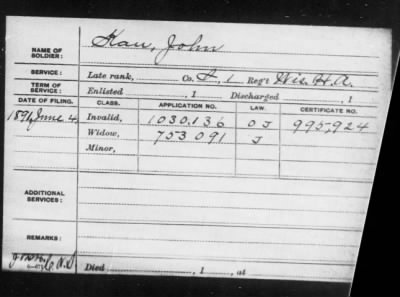 NAME OF SOLDIER: Kau, John
SERVICE: Late rank, Co. F, 1 Reg't Wis. H.A.
TERM OF SERVICE: Enlisted , 1 Discharged , 1
DATE OF FILING. CLASS. APPLICATION NO. LAW. CERTIFICATE NO.
1891, June 4. Invalid, 1030,136 O J 995,924
Widow, 753091 J
Minor,
ADDITIONAL SERVICES:
REMARKS:
Died , 1 , at